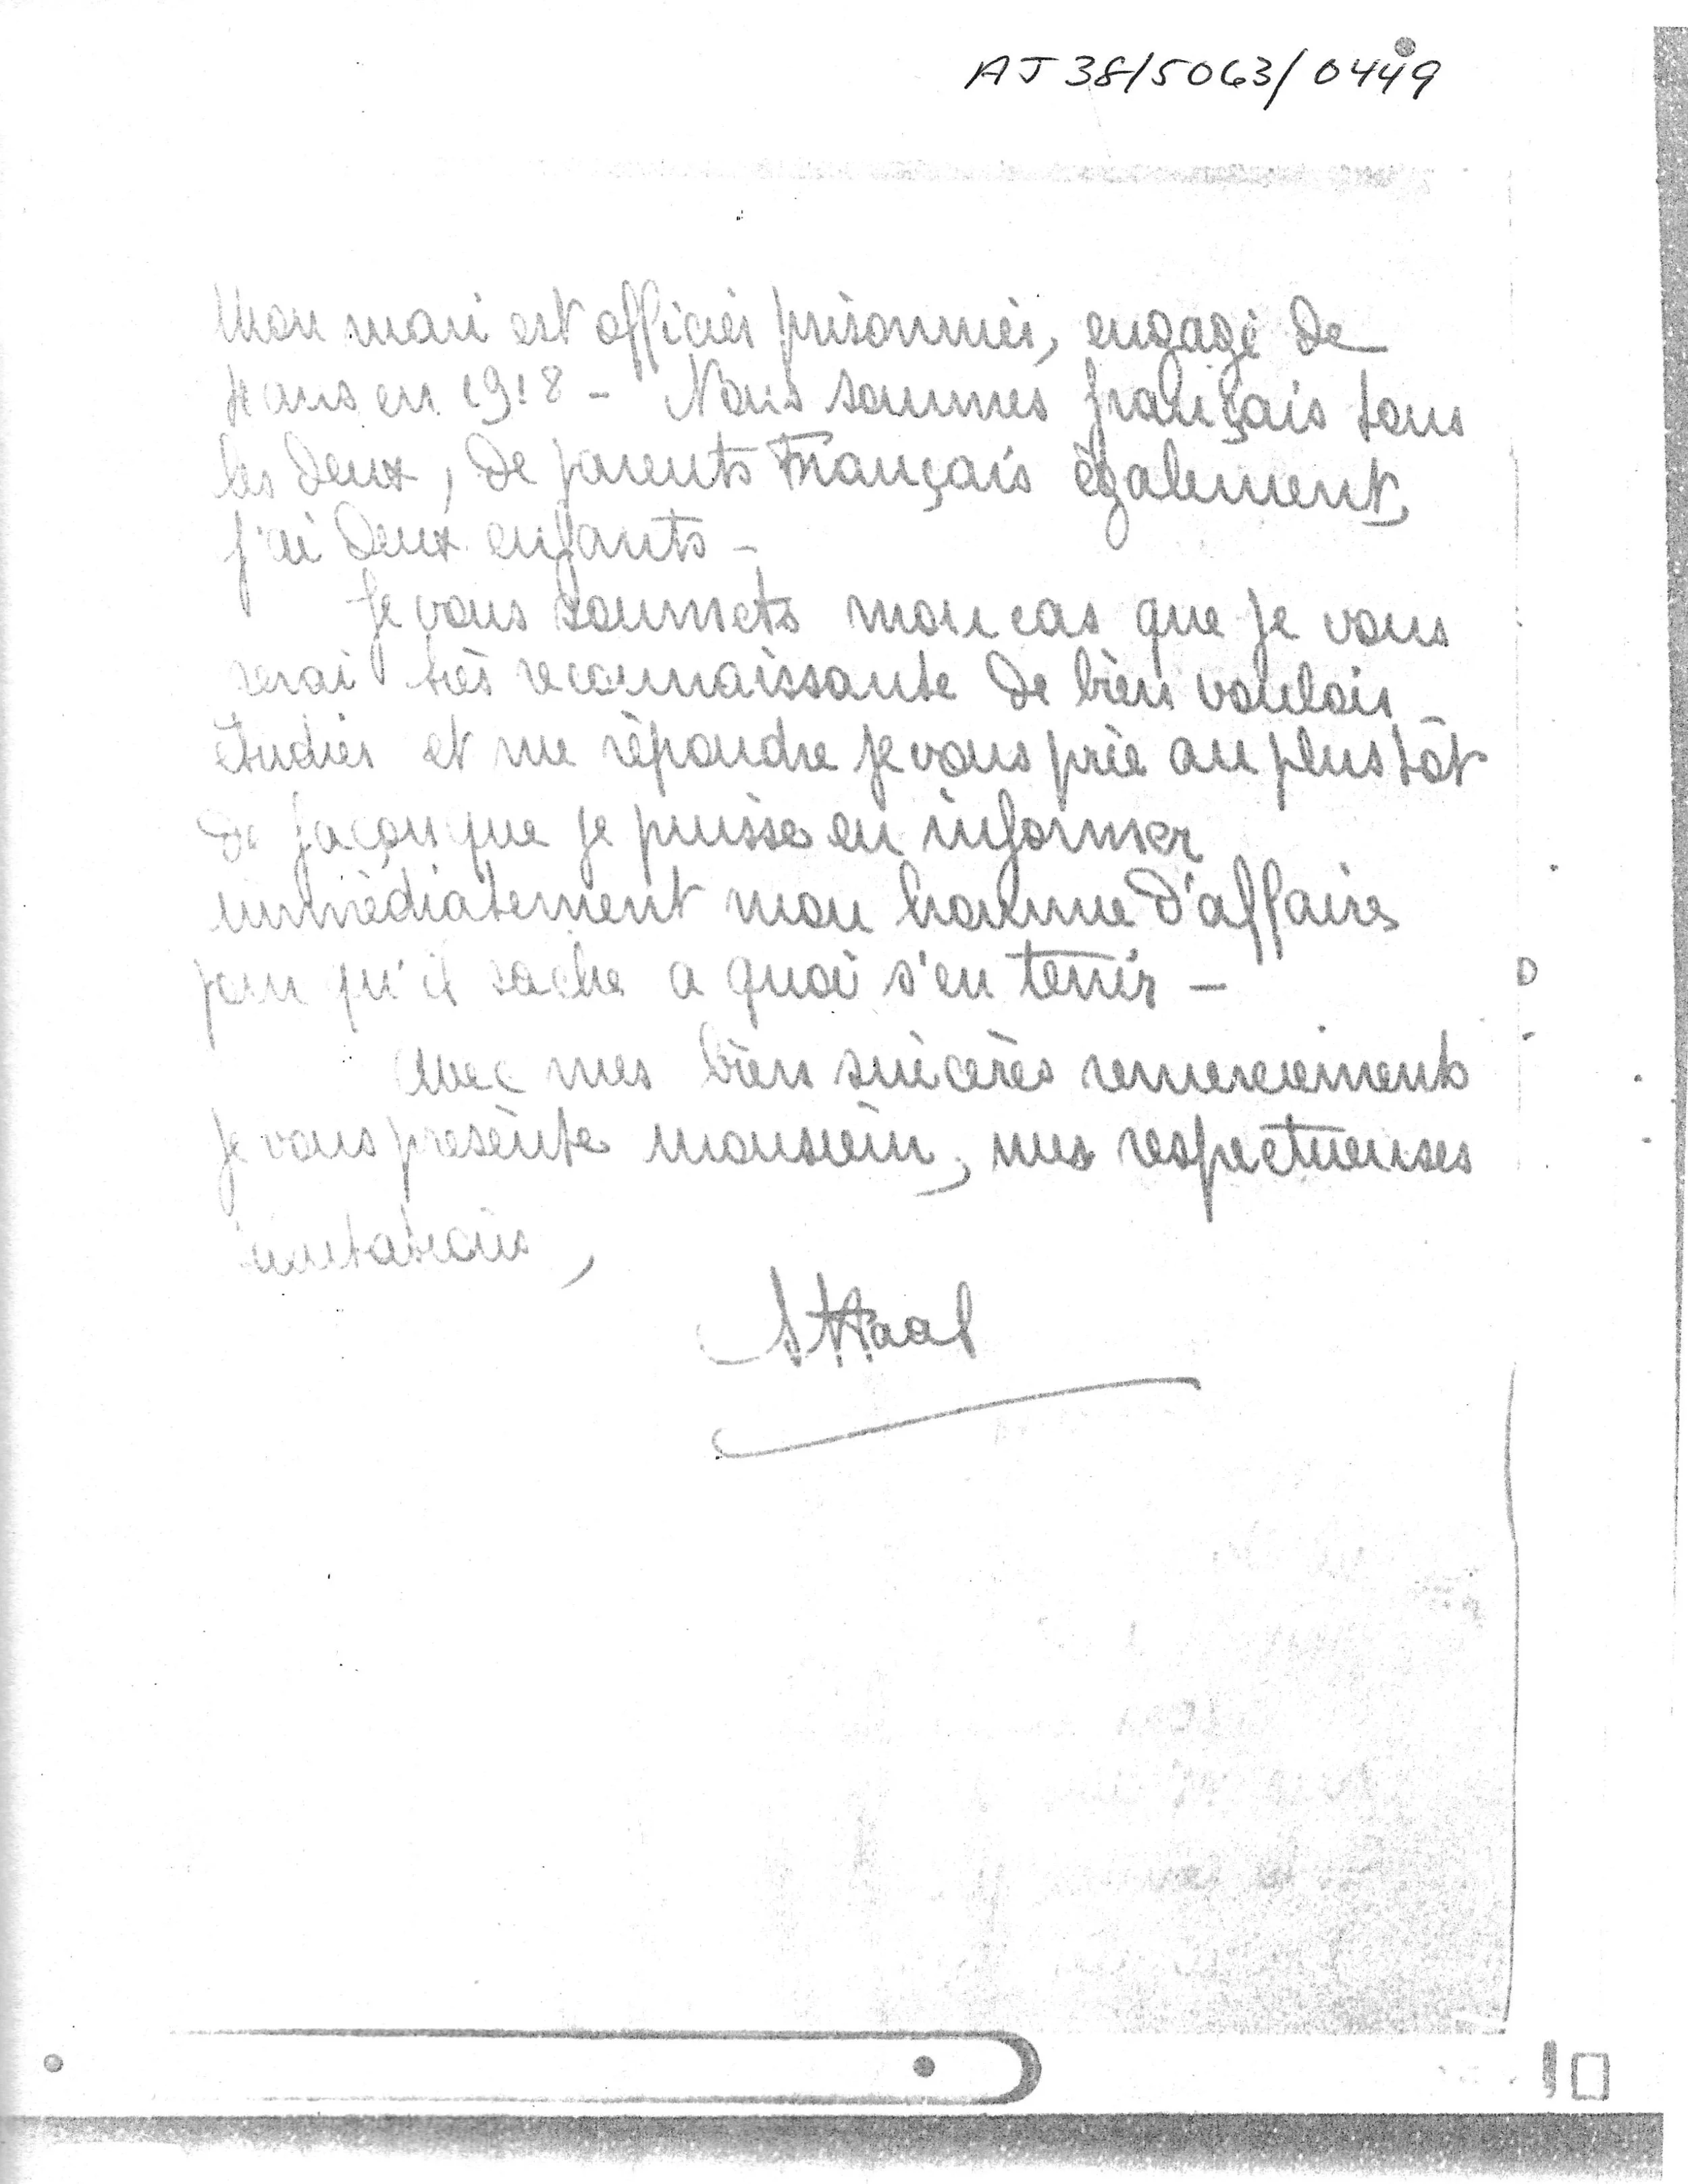 AJ 38/5063/0449
Mon mari est officier prisonnier, engagé de
4 ans en 1918 - Nous sommes français tous
les deux, de parents Français également,
j'ai deux enfants -
Je vous soumets mon cas que je vous
serai très reconnaissante de bien vouloir
étudier et me répondre je vous prie au plus tôt
de façon que je puisse en informer
immédiatement mon homme d'affaires
pour qu'il sache a quoi s'en tenir -
Avec mes bien sincères remerciements
je vous présente monsieur, mes respectueuses
,